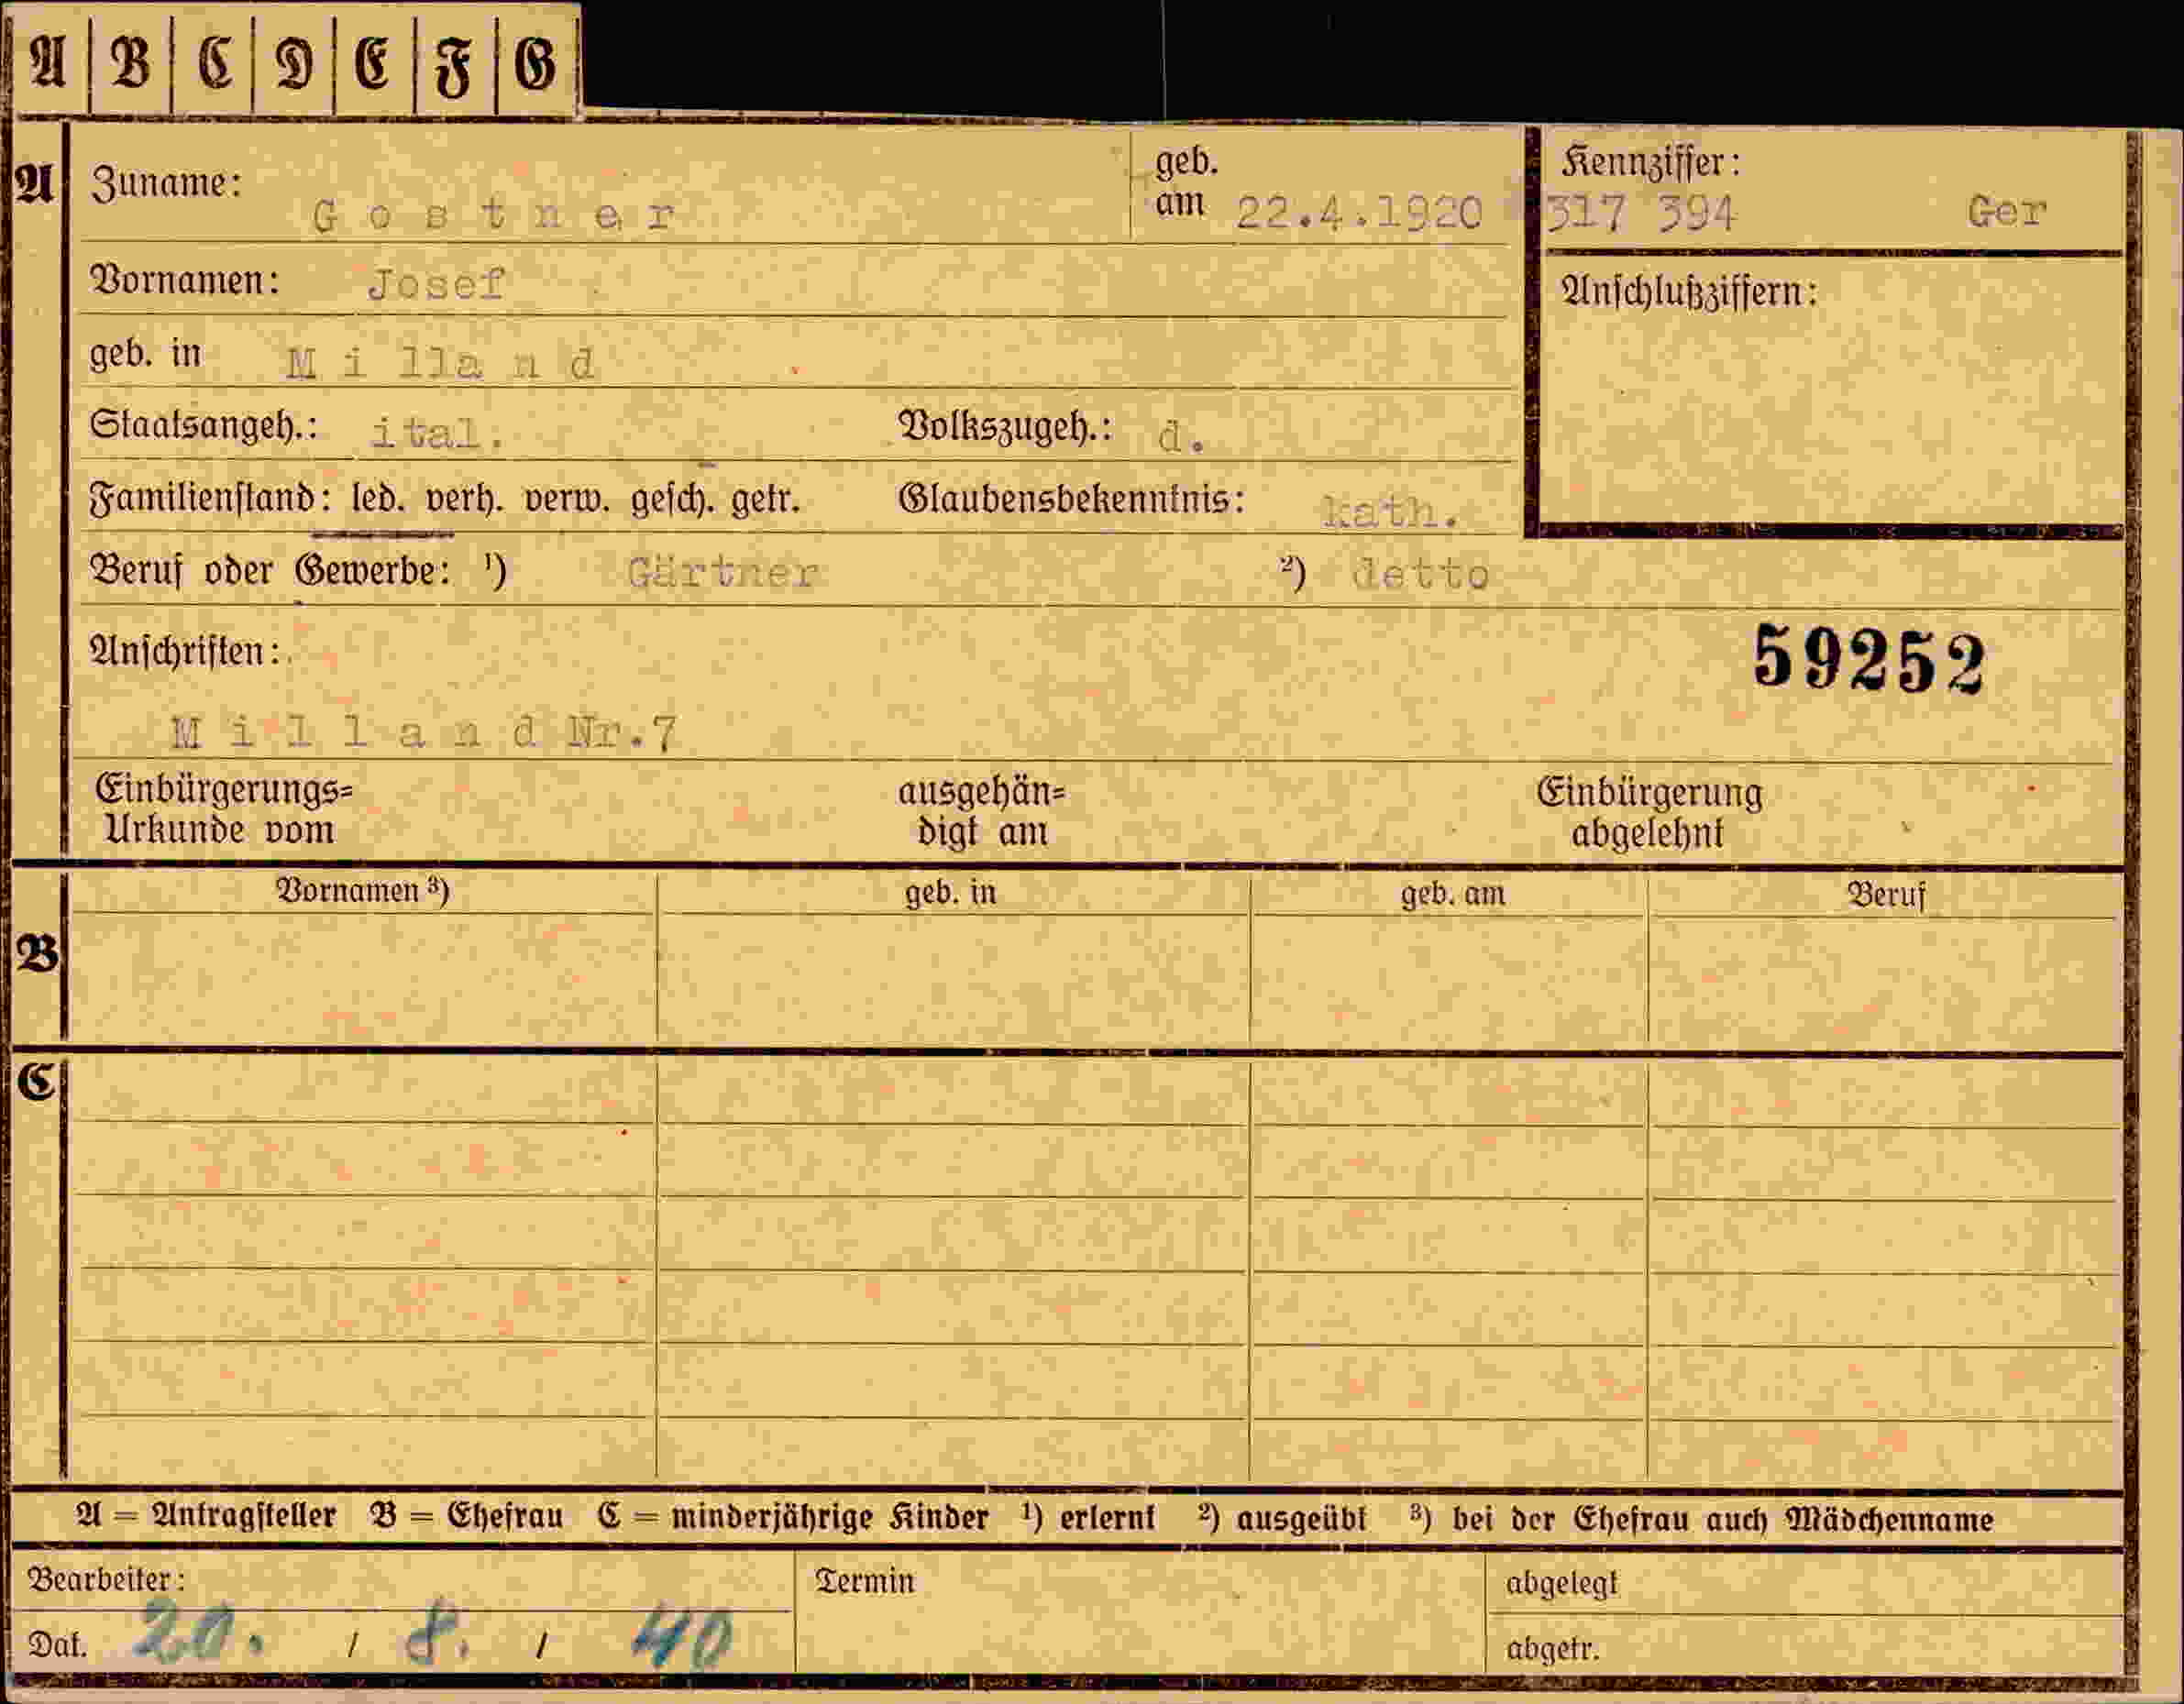 A B C D E F G
A Zuname: Gostner geb. am 22.4.1920 Kennziffer: 317 394 Ger
Vornamen: Josef Anschlußziffern:
geb. in Milland
Staatsangeh.: ital. Volkszugeh.: d.
Familienstand: led. verh. verw. gesch. getr. Glaubensbekenntnis: kath.
Beruf oder Gewerbe: ¹) Gärtner ²) detto
Anschriften: 59252
Milland Nr.7
Einbürgerungs= ausgehän= Einbürgerung
Urkunde vom digt am abgelehnt
Vornamen ³) geb. in geb. am Beruf
B
C
A = Antragsteller B = Ehefrau C = minderjährige Kinder ¹) erlernt ²) ausgeübt ³) bei der Ehefrau auch Mädchenname
Bearbeiter: Termin abgelegt
Dat. 20. / 8. / 40 abgetr.